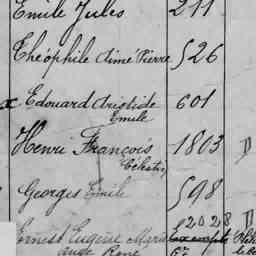 Emile Jules 211
Théophile Aimé Pierre 526
x Edouard Aristide 601
Emile
Henri François 1803
Célestin
Georges Emile 598
2028
Ernest Eugène Marie
René